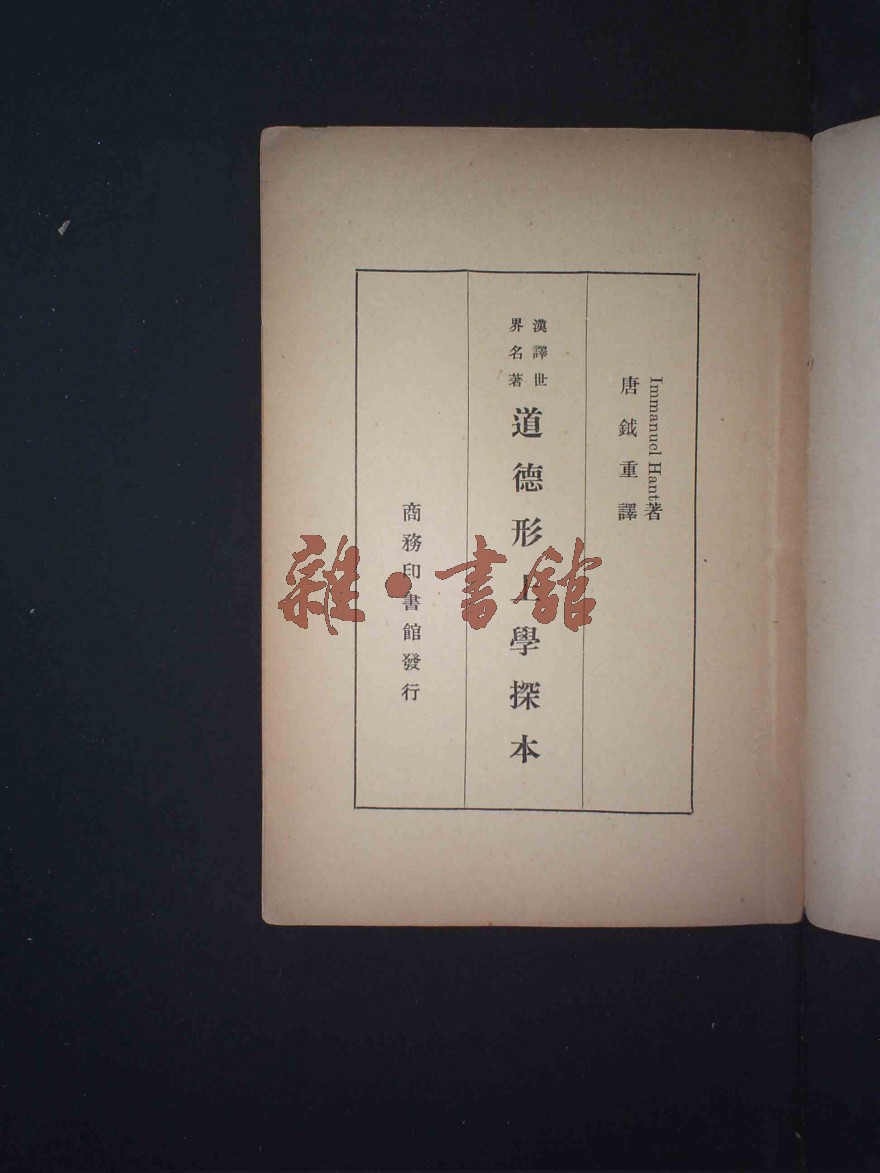 Immanuel Hant著
唐鉞重譯
漢譯世
界名著
道德形上學探本
商務印書館發行
雜·書館